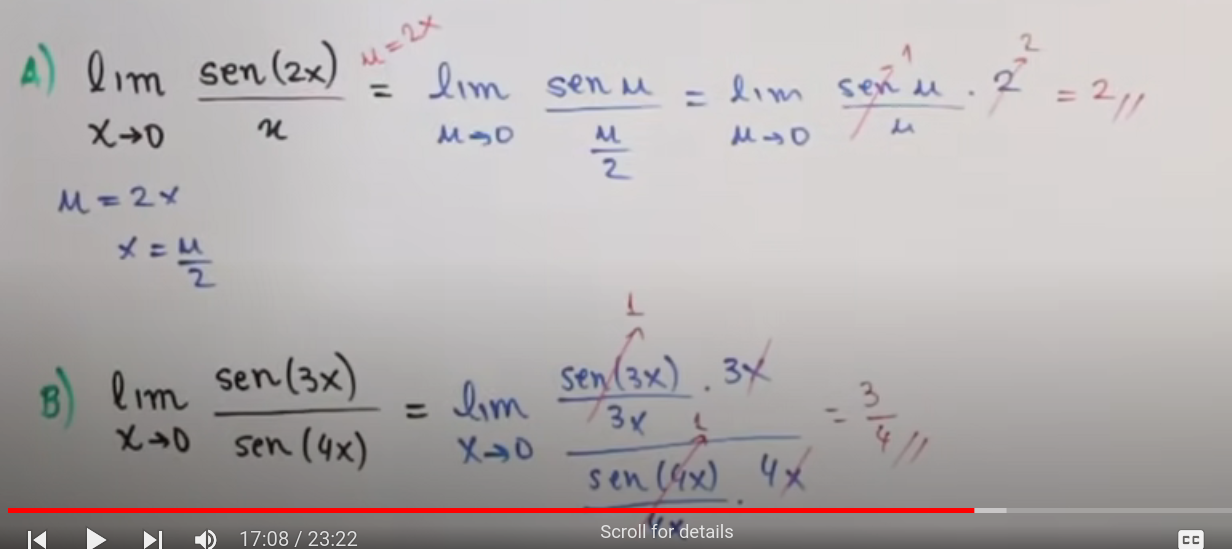 A) lim x→0 sen(2x)/x = μ=2x lim μ→0 sen μ/(μ/2) = lim μ→0 sen μ/μ · 2 = 2//
1 2
μ = 2x
x = μ/2
B) lim x→0 sen(3x)/sen(4x) = lim x→0 (sen(3x)/3x · 3x)/(sen(4x)/4x · 4x) = 3/4//
1
1
17:08 / 23:22
Scroll for details
CC